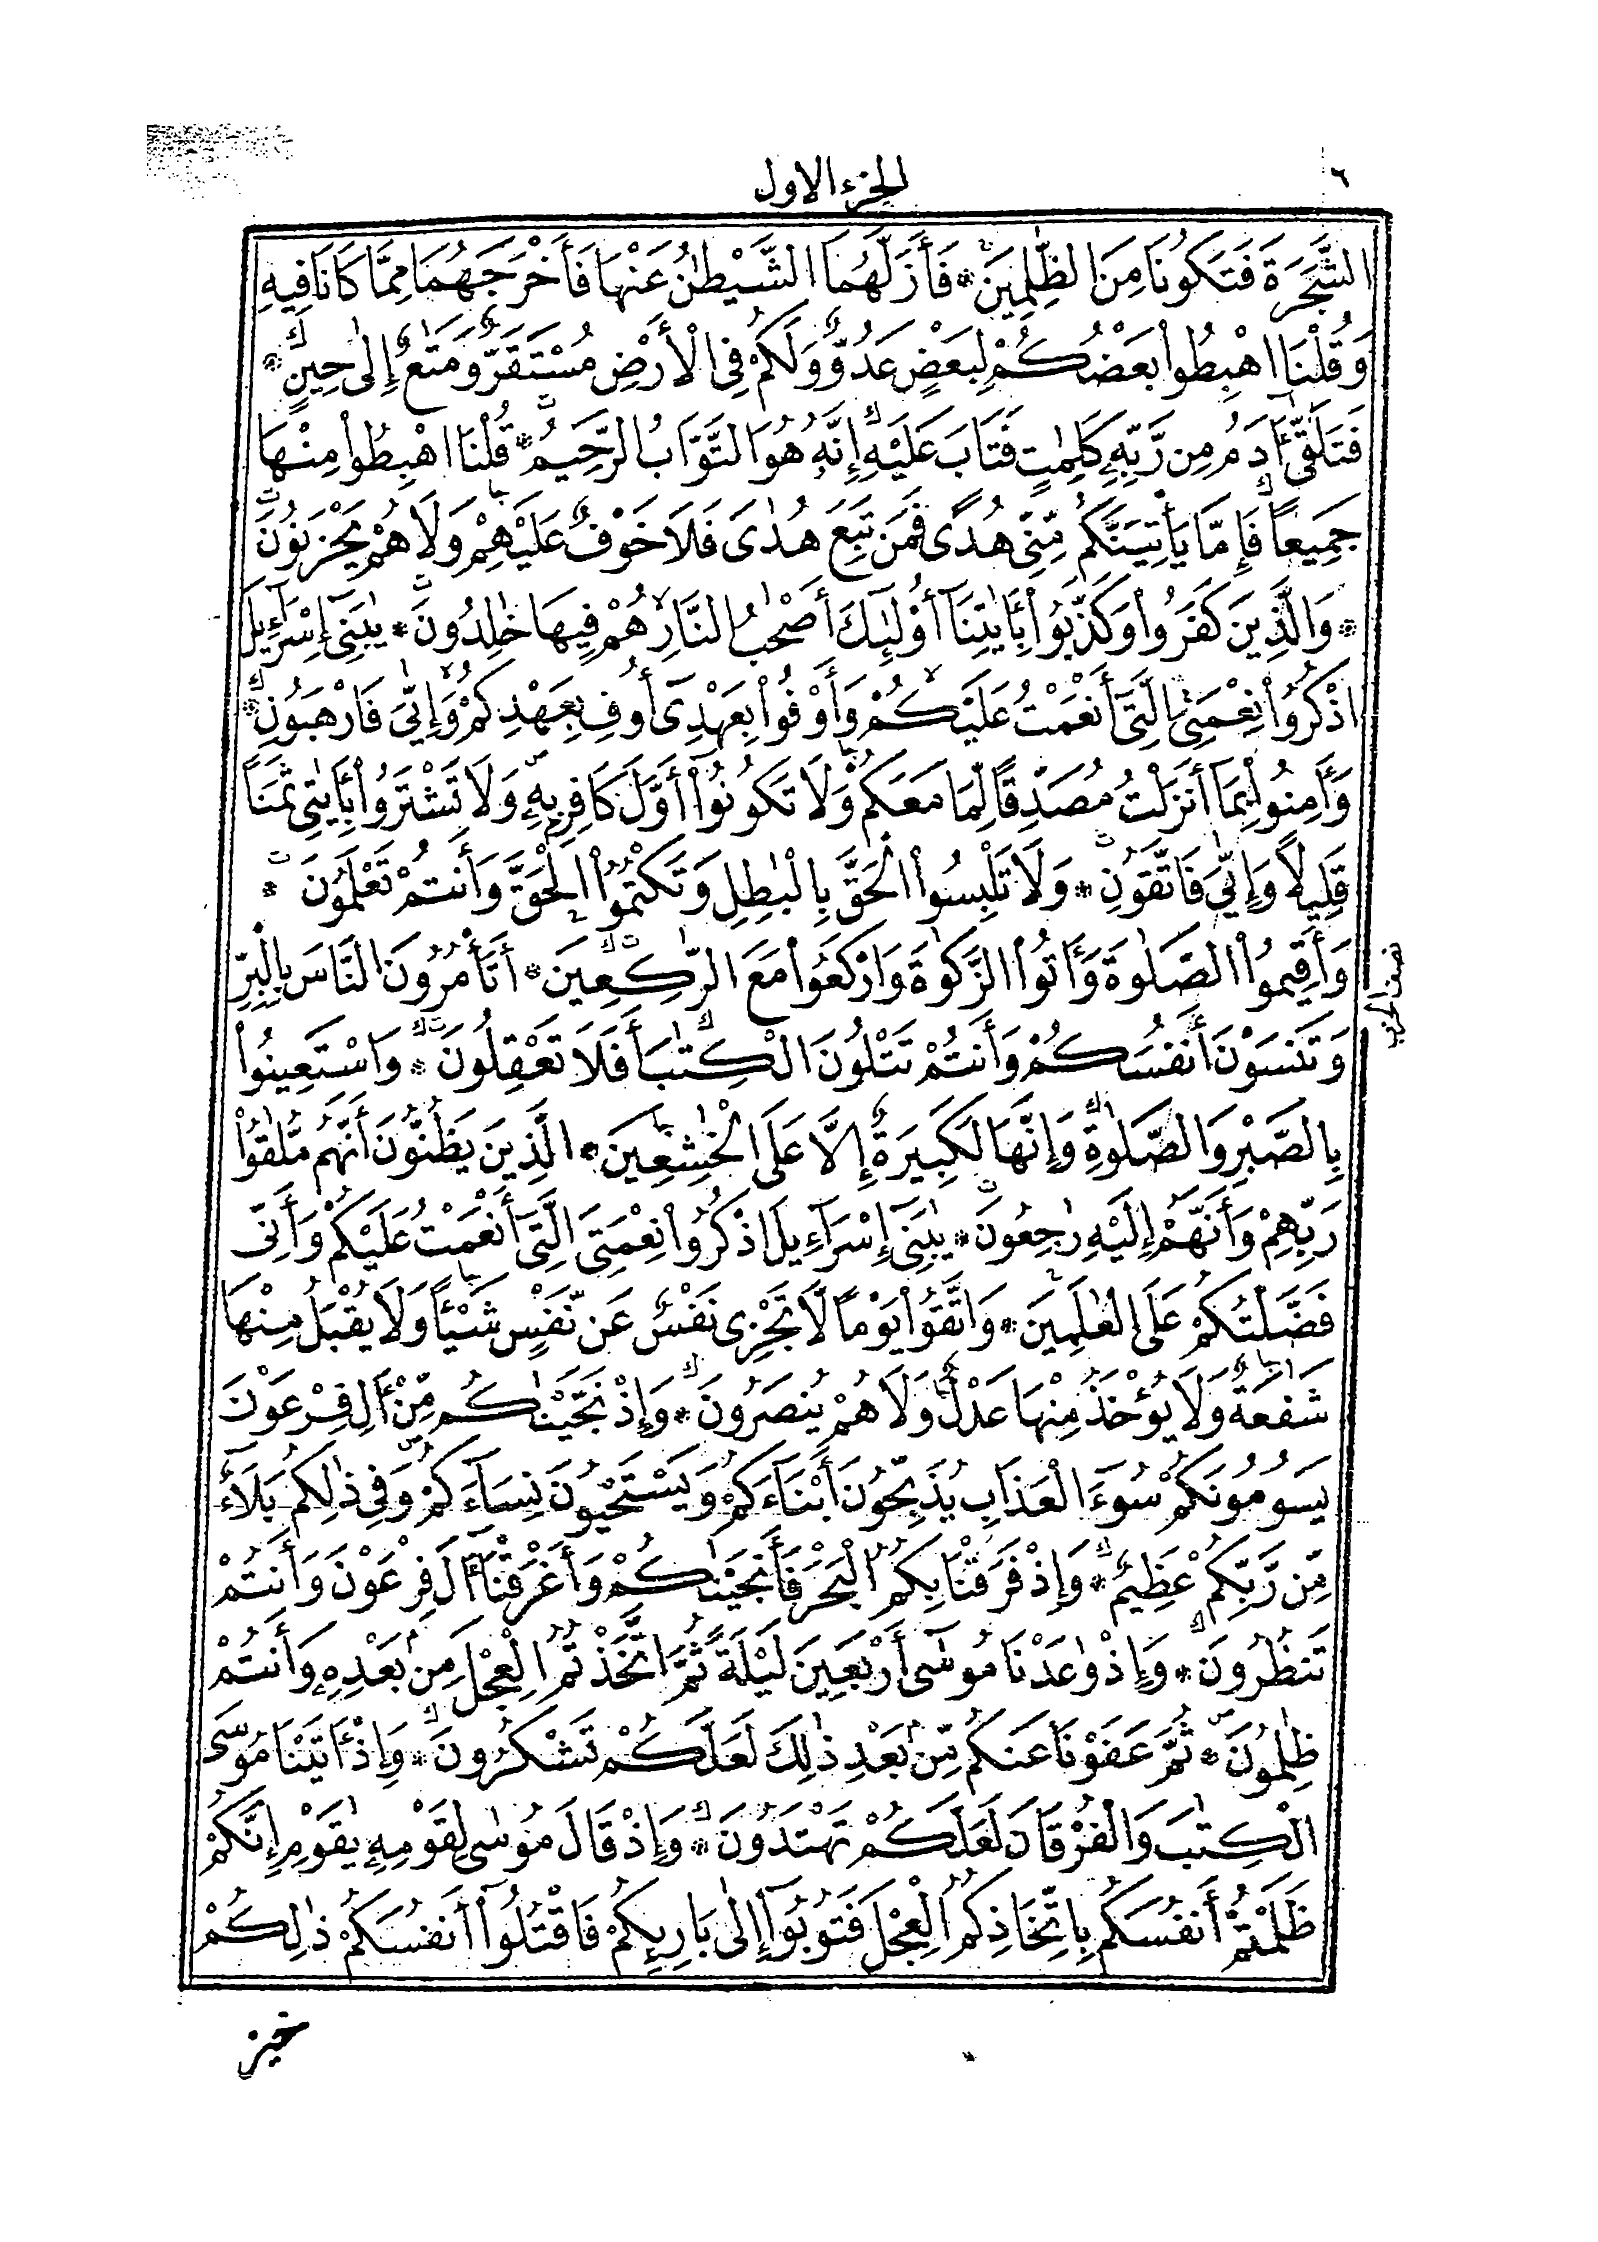 ٦
الجزء الاول
الشَّجَرَةَ فَتَكُونَا مِنَ الظّٰلِمِينَ * فَأَزَلَّهُمَا الشَّيْطٰنُ عَنْهَا فَأَخْرَجَهُمَا مِمَّا كَانَا فِيهِ
وَقُلْنَا اهْبِطُواْ بَعْضُكُمْ لِبَعْضٍ عَدُوٌّ وَلَكُمْ فِى الْأَرْضِ مُسْتَقَرٌّ وَمَتٰعٌ إِلٰى حِينٍ *
فَتَلَقّٰٓى ءَادَمُ مِن رَّبِّهِۦ كَلِمٰتٍ فَتَابَ عَلَيْهِ إِنَّهُۥ هُوَ التَّوَّابُ الرَّحِيمُ * قُلْنَا اهْبِطُواْ مِنْهَا
جَمِيعًا فَإِمَّا يَأْتِيَنَّكُم مِّنِّى هُدًى فَمَن تَبِعَ هُدَاىَ فَلَا خَوْفٌ عَلَيْهِمْ وَلَا هُمْ يَحْزَنُونَ
* وَالَّذِينَ كَفَرُواْ وَكَذَّبُواْ بِـَٔايٰتِنَآ أُوْلٰٓئِكَ أَصْحٰبُ النَّارِ هُمْ فِيهَا خٰلِدُونَ * يٰبَنِىٓ إِسْرَآءِيلَ
اذْكُرُواْ نِعْمَتِىَ الَّتِىٓ أَنْعَمْتُ عَلَيْكُمْ وَأَوْفُواْ بِعَهْدِىٓ أُوفِ بِعَهْدِكُمْ وَإِيّٰىَ فَارْهَبُونِ *
وَءَامِنُواْ بِمَآ أَنزَلْتُ مُصَدِّقًا لِّمَا مَعَكُمْ وَلَا تَكُونُوٓاْ أَوَّلَ كَافِرٍ بِهِۦ وَلَا تَشْتَرُواْ بِـَٔايٰتِى ثَمَنًا
قَلِيلًا وَإِيّٰىَ فَاتَّقُونِ * وَلَا تَلْبِسُواْ الْحَقَّ بِالْبٰطِلِ وَتَكْتُمُواْ الْحَقَّ وَأَنتُمْ تَعْلَمُونَ *
وَأَقِيمُواْ الصَّلٰوةَ وَءَاتُواْ الزَّكٰوةَ وَارْكَعُواْ مَعَ الرّٰكِعِينَ * أَتَأْمُرُونَ النَّاسَ بِالْبِرِّ
نصف الحزب
وَتَنسَوْنَ أَنفُسَكُمْ وَأَنتُمْ تَتْلُونَ الْكِتٰبَ أَفَلَا تَعْقِلُونَ * وَاسْتَعِينُواْ
بِالصَّبْرِ وَالصَّلٰوةِ وَإِنَّهَا لَكَبِيرَةٌ إِلَّا عَلَى الْخٰشِعِينَ * الَّذِينَ يَظُنُّونَ أَنَّهُم مُّلٰقُواْ
رَبِّهِمْ وَأَنَّهُمْ إِلَيْهِ رٰجِعُونَ * يٰبَنِىٓ إِسْرَآءِيلَ اذْكُرُواْ نِعْمَتِىَ الَّتِىٓ أَنْعَمْتُ عَلَيْكُمْ وَأَنِّى
فَضَّلْتُكُمْ عَلَى الْعٰلَمِينَ * وَاتَّقُواْ يَوْمًا لَّا تَجْزِى نَفْسٌ عَن نَّفْسٍ شَيْـًٔا وَلَا يُقْبَلُ مِنْهَا
شَفٰعَةٌ وَلَا يُؤْخَذُ مِنْهَا عَدْلٌ وَلَا هُمْ يُنصَرُونَ * وَإِذْ نَجَّيْنٰكُم مِّنْ ءَالِ فِرْعَوْنَ
يَسُومُونَكُمْ سُوٓءَ الْعَذَابِ يُذَبِّحُونَ أَبْنَآءَكُمْ وَيَسْتَحْيُونَ نِسَآءَكُمْ وَفِى ذٰلِكُم بَلَآءٌ
مِّن رَّبِّكُمْ عَظِيمٌ * وَإِذْ فَرَقْنَا بِكُمُ الْبَحْرَ فَأَنجَيْنٰكُمْ وَأَغْرَقْنَآ ءَالَ فِرْعَوْنَ وَأَنتُمْ
تَنظُرُونَ * وَإِذْ وٰعَدْنَا مُوسٰىٓ أَرْبَعِينَ لَيْلَةً ثُمَّ اتَّخَذْتُمُ الْعِجْلَ مِن بَعْدِهِۦ وَأَنتُمْ
ظٰلِمُونَ * ثُمَّ عَفَوْنَا عَنكُم مِّن بَعْدِ ذٰلِكَ لَعَلَّكُمْ تَشْكُرُونَ * وَإِذْ ءَاتَيْنَا مُوسَى
الْكِتٰبَ وَالْفُرْقَانَ لَعَلَّكُمْ تَهْتَدُونَ * وَإِذْ قَالَ مُوسٰى لِقَوْمِهِۦ يٰقَوْمِ إِنَّكُمْ
ظَلَمْتُمْ أَنفُسَكُم بِاتِّخَاذِكُمُ الْعِجْلَ فَتُوبُوٓاْ إِلٰى بَارِئِكُمْ فَاقْتُلُوٓاْ أَنفُسَكُمْ ذٰلِكُمْ
خير